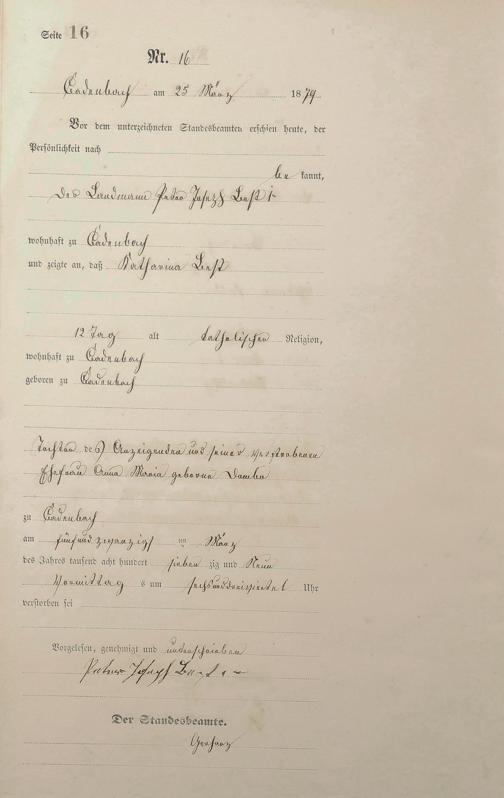 Seite 16
Nr. 16
Cadenbach am 25 März 1879
Vor dem unterzeichneten Standesbeamten erschien heute, der
Persönlichkeit nach
be kannt,
der Landmann Peter Joseph Best I
wohnhaft zu Cadenbach
und zeigte an, daß Katharina Best
12 Tag alt katholischer Religion,
wohnhaft zu Cadenbach
geboren zu Cadenbach
Tochter des Anzeigenden und seiner verstorbenen
Ehefrau Anna Maria geborne
zu Cadenbach
am fünfundzwanzigst en März
des Jahres tausend acht hundert sieben zig und Neun
Vormittag s um Uhr
verstorben sei
Vorgelesen, genehmigt und unterschrieben
Peter Joseph
Der Standesbeamte.